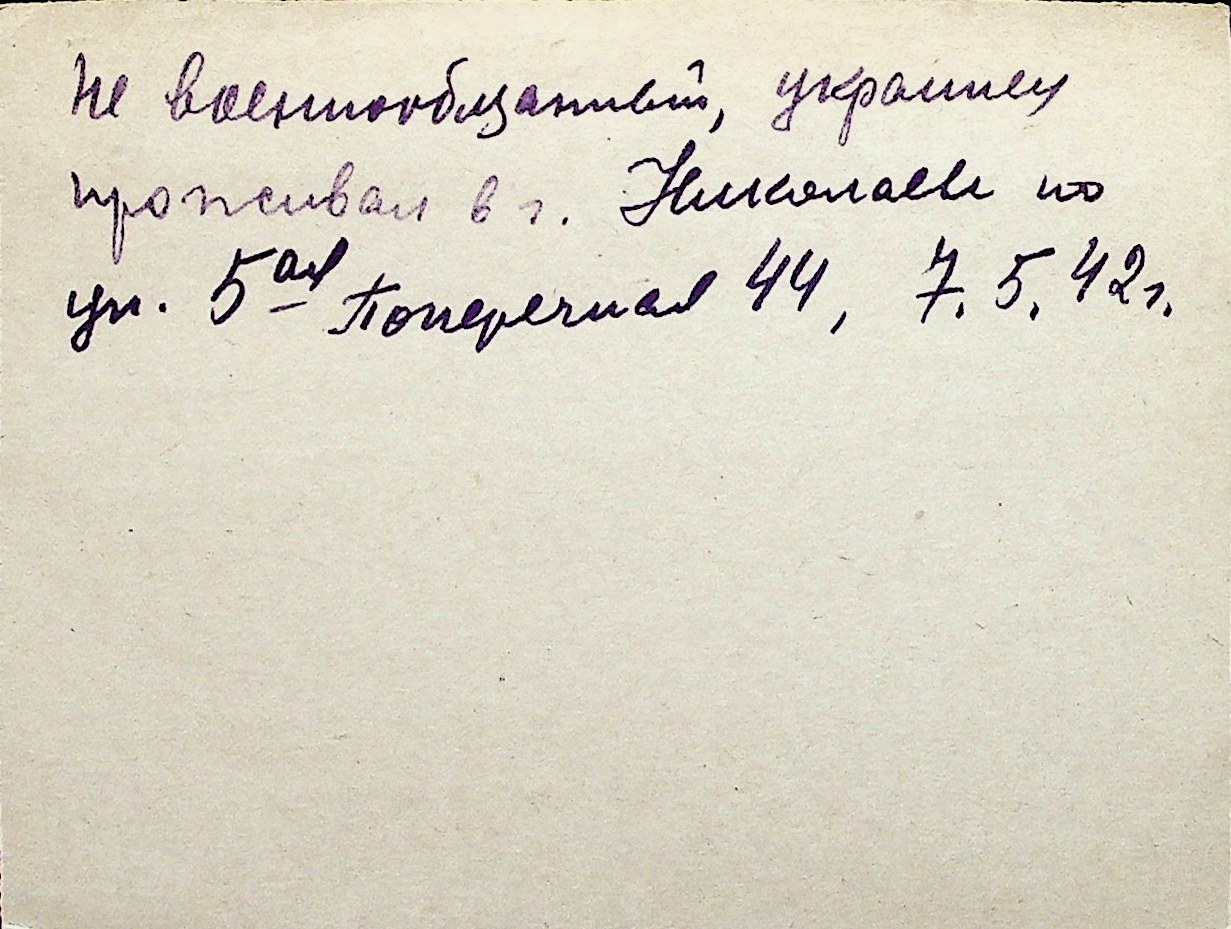 Не военнообязанный, украинец
проживал в г. Николаеве по
ул. 5ая Поперечная 44, 7.5.42г.